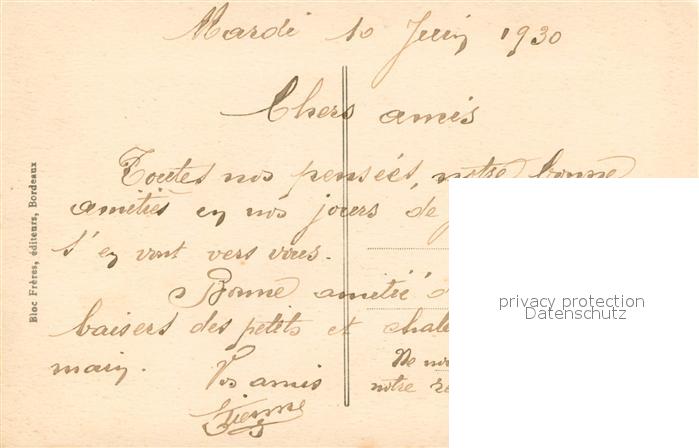 Mardi 10 Juin 1930
Chers amis
Toutes nos pensées, notre bonne
amitiés en nos jours de
s'en vont vers vous.
Bonne amitié
baisers des petits et
main.
Vos amis
De
notre
Bloc Frères, éditeurs, Bordeaux
privacy protection
Datenschutz